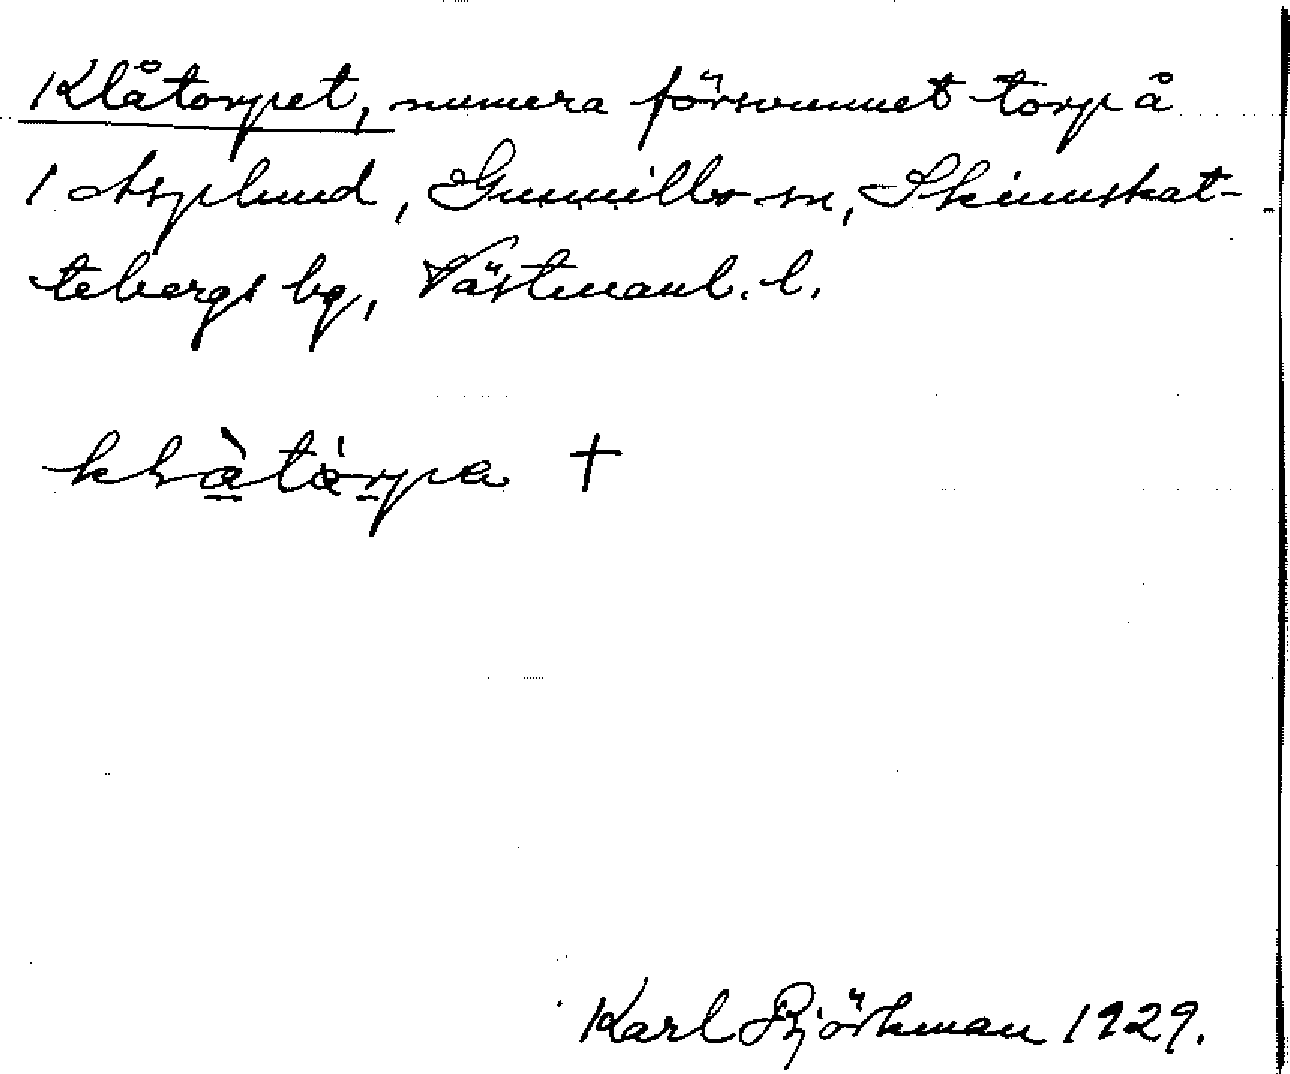 Klåtorpet, numera försvunnet torp å
1 Asplund, Gunnilbo sn, Skinnskat-
tebergs bg, Västmanl. l.
klàtårpa †
Karl Björkman 1929.